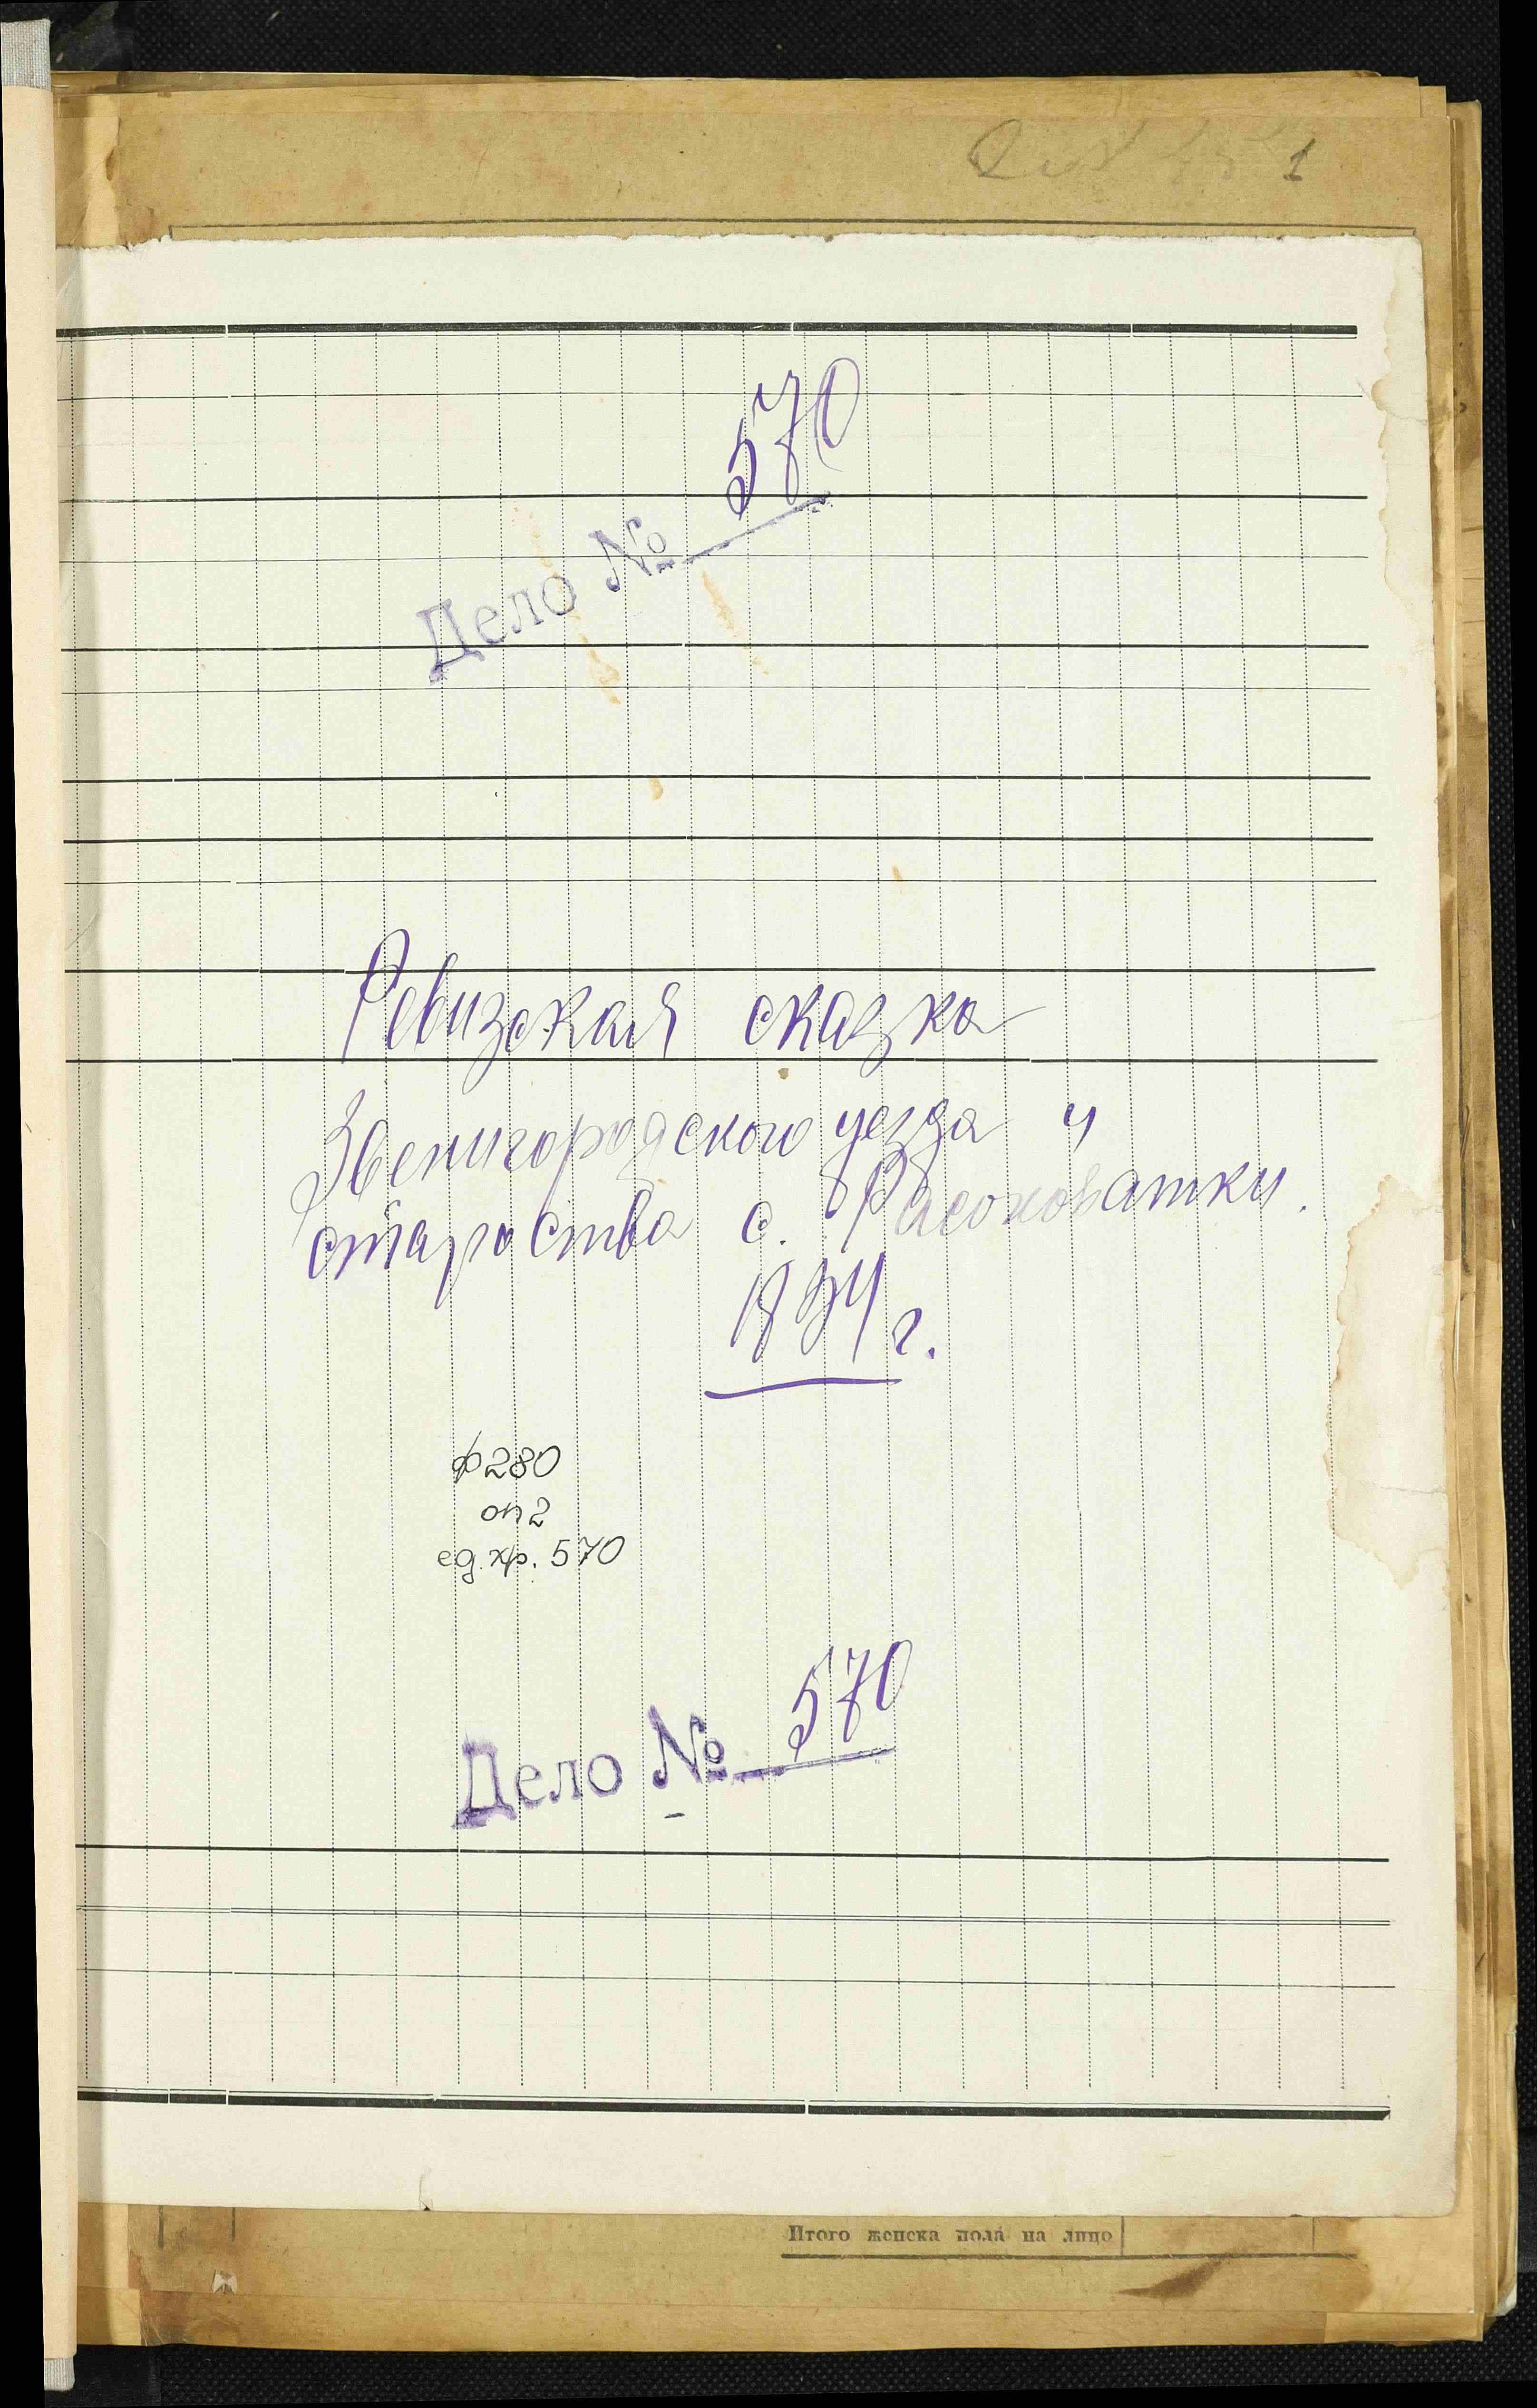 1
Дело № 570
Ревизская сказка
Звенигородского уезда и
староства с. Расоховатки.
1834 г.
ф 280
оп 2
ед. хр. 570
Дело № 570
Итого женска пола на лицо